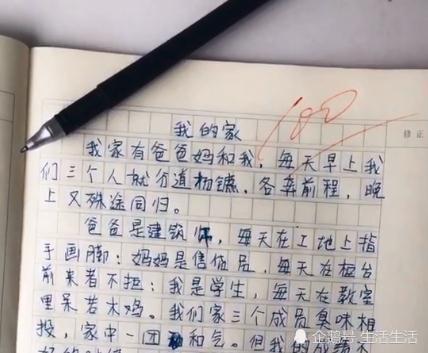 100
修正
我的家
我家有爸爸妈和我,每天早上我
们三个人就分道扬镳,各奔前程,晚
上又殊途同归。
爸爸是建筑师,每天在工地上指
手画脚;妈妈是售货员,每天在柜台
前来者不拒;我是学生,每天在教室
里呆若木鸡。我们家三个成员臭味相
投,家中一团和气。但我的成
企鹅号 生活生活